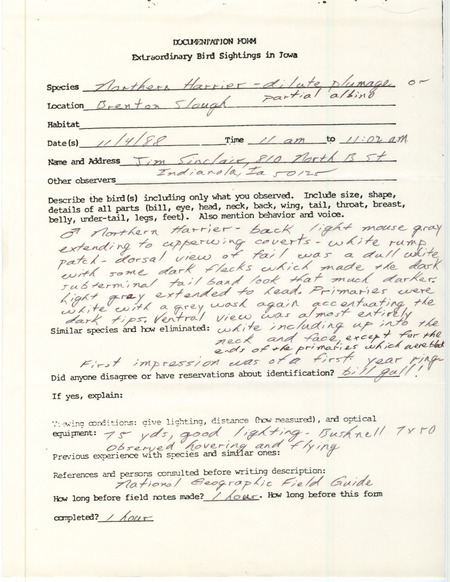 DOCUMENTATION FORM
Extraordinary Bird Sightings in Iowa
Species Northern Harrier - dilute plumage or
partial albino
Location Brenton Slough
Habitat
Date(s) 11/4/88 Time 11 am to 11:02 am
Name and Address Jim Sinclair, 810 North B St
Indianola, Ia 50125
Other observers
Describe the bird(s) including only what you observed. Include size, shape,
details of all parts (bill, eye, head, neck, back, wing, tail, throat, breast,
belly, under-tail, legs, feet). Also mention behavior and voice.
♂ Northern Harrier - back light mouse gray
extending to upperwing coverts - white rump
patch - dorsal view of tail was a dull white
with some dark flecks which made the dark
subterminal tail band look that much darker.
Light gray extended to head. Primaries were
white with a grey wash again accentuating the
dark tips. Ventral view was almost entirely
Similar species and how eliminated: white including up into the
neck and face, except for the
ends of the primaries which were
First impression was of a first year ring
Did anyone disagree or have reservations about identification? bill gull!
If yes, explain:
Viewing conditions: give lighting, distance (how measured), and optical
equipment: 75 yds, good lighting - Bushnell 7x50
Observed hovering and flying
Previous experience with species and similar ones:
References and persons consulted before writing description:
National Geographic Field Guide
How long before field notes made? 1 hour. How long before this form
completed? 1 hour